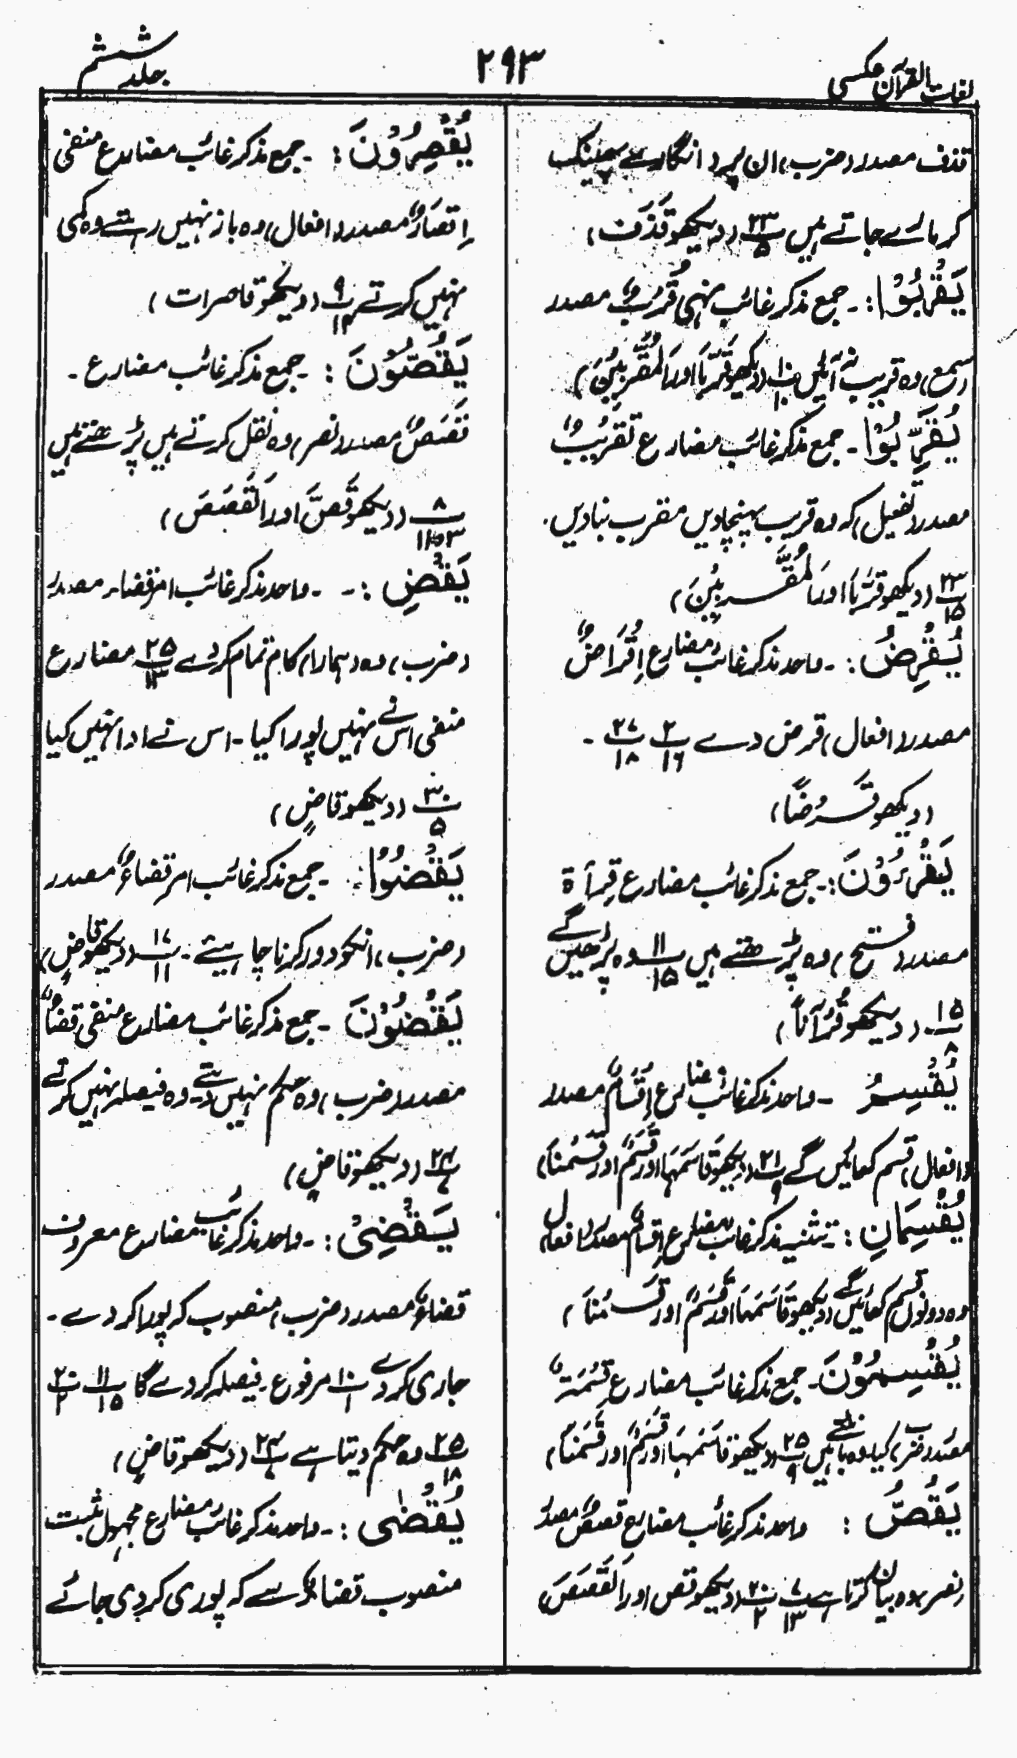 لغات القرآن عکسی
۲۹۳
جلد ششم
قذف مصدر (ضرب) ان پر انگارے پھینک
کر مارے جاتے ہیں ۲۳/۵ (دیکھو قَذَفَ)
یَقْرَبُوْا: ۔ جمع مذکر غائب نہی قُرْبٌ مصدر
(سمع) وہ قریب نہ آئیں ۱۰/۱۰ (دیکھو قَرَّبَا اور اَلْمُقَرَّبِیْنَ)
یُقَرِّبُوْا ۔ جمع مذکر غائب مضارع تَقْرِیْبٌ
مصدر (تفعیل) کہ وہ قریب پہنچا دیں مقرب بنا دیں.
۲۳/۱۵ (دیکھو قَرَّبَا اور اَلْمُقَرَّبِیْنَ)
یُقْرِضُ: ۔ واحد مذکر غائب مضارع اِقْرَاضٌ
مصدر (افعال) قرض دے ۲/۱۶ ۲۷/۱۸ ۔
(دیکھو قَرْضًا)
یَقْرَءُوْنَ: ۔ جمع مذکر غائب مضارع قِرأۃ
مصدر (فتح) وہ پڑھتے ہیں ۱۱/۱۵ وہ پڑھیں گے
۱۵/۸ (دیکھو قُرْآنًا)
یُقْسِمُ ۔ واحد مذکر غائب مضارع اِقْسَامٌ مصدر
(افعال) قسم کھائیں گے ۲۱/۹ (دیکھو قَاسَمَهَا اور قَسَمٌ اور قَسَمْنَا)
یُقْسِمَانِ: ۔ تثنیہ مذکر غائب مضارع اِقْسَامٌ مصدر (افعال)
وہ دونوں قسم کھائیں گے (دیکھو قَاسَمَهَا اور قَسَمٌ اور قَسَمْنَا)
یَقْسِمُوْنَ ۔ جمع مذکر غائب مضارع قِسْمَۃٌ
مصدر (ضرب) کیا وہ بانٹتے ہیں ۲۵/۹ (دیکھو قَاسَمَهَا اور قَسَمٌ اور قَسَمْنَا)
یَقُصُّ: واحد مذکر غائب مضارع قصصٌ مصدر
(نصر) وہ بیان کرتا ہے ۷/۱۳ ۲۰/۲ (دیکھو قص اور اَلْقَصَصَ)
یُقْصِرُوْنَ: ۔ جمع مذکر غائب مضارع منفی
اِقصَارٌ مصدر (افعال) وہ باز نہیں رہتے وہ کمی
نہیں کرتے ۹/۱۴ (دیکھو قاصرات)
یَقُصُّوْنَ: ۔ جمع مذکر غائب مضارع ۔
قَصَصٌ مصدر (نصر) وہ نقل کرتے ہیں پڑھتے ہیں
۸/۱۱و۳ (دیکھو قَصَّ اور اَلْقَصَصَ)
یَقْضِ: ۔ ۔ واحد مذکر غائب امر قضاء مصدر
(ضرب) وہ (ہمارا) کام تمام کردے ۲۵/۱۳ مضارع
منفی اس نے نہیں پورا کیا ۔ اس نے ادا نہیں کیا
۳۰/۵ (دیکھو قاضٍ)
یَقْضُوْا: ۔ جمع مذکر غائب امر قضاءٌ مصدر
(ضرب) انکو دور کرنا چاہیئے ۔ ۱۷/۱۱ (دیکھو قاضٍ)
یَقْضُوْنَ ۔ جمع مذکر غائب مضارع منفی قضاءٌ
مصدر (ضرب) وہ حکم نہیں دیتے ۔ وہ فیصلہ نہیں کرتے
(دیکھو قاضٍ)
یَقْضِیْ: ۔ واحد مذکر غائب مضارع معروف
قضاءٌ مصدر (ضرب) منصوب کہ پورا کر دے ۔
جاری کر دے ۱۰/۱ مرفوع ۔ فیصلہ کر دے گا ۱۱/۱۵ ۲۰/۲
۲۵/۱۸ وہ حکم دیتا ہے (دیکھو قاضٍ)
یُقْضٰی: ۔ واحد مذکر غائب مضارع مجہول مثبت
منصوب قضاءٌ سے کہ پوری کردی جائے